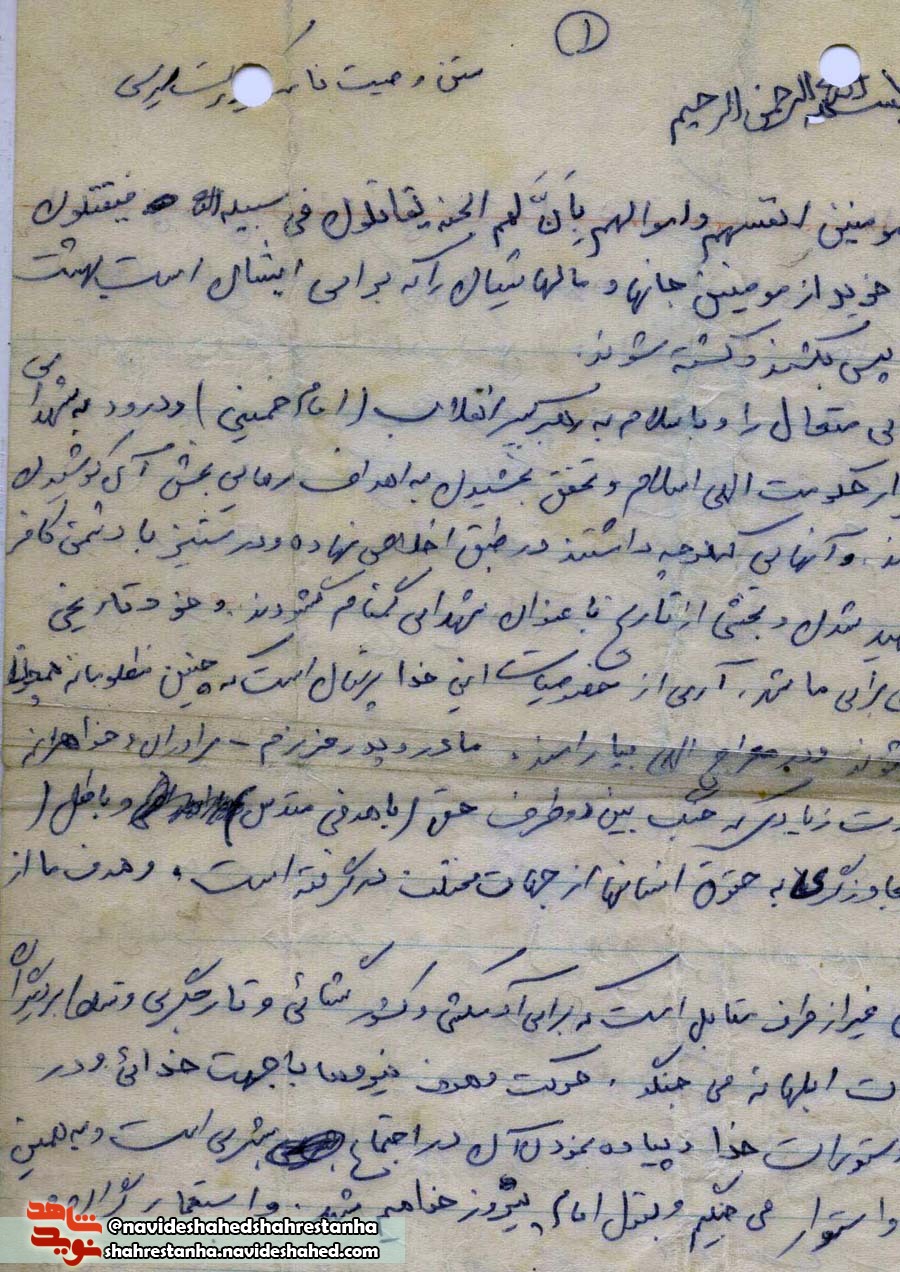 ۱
متن وصیت نامه
بسم الله الرحمن الرحیم
مومنین انفسهم واموالهم بِاَنَّ لهم الجنه یقاتلون فی سبیل الله فیقتلون
خرید از مومنین جانها و مالهایشان را که برای ایشان است بهشت
پس بکشند و کشته شوند.
متعال را و با سلام به رهبر کبیر انقلاب (امام خمینی) ودرود به شهدای
حکومت الهی اسلام و تحقق بخشیدن به اهداف رهایی بخش آن کوشیدن
و آنهایی که هرچه داشتند در طبق اخلاص نهاده ودر ستیز با دشمن کافر
شدن و بخشی از تاریخ با عنوان شهدای گمنام گشودند. وخود تاریخی
برای ما شد. آری از خصوصیات این خدا پرستان است که چنین مظلومانه
معراج الهی بیارامند. مادر و پدر عزیزم - برادران و خواهرانم
زیادی که جنگ بین دو طرف حق (با هدفی مقدس) و باطل (
به حقوق انسانها از جهات مختلف در گرفته است. و هدف ما از
غیر از طرف مقابل است که برای آدمکشی و کشور گشائی و تاراجگری و تسلط بر دیگران
ابلهانه می جنگد. حرکت وهدف نیروها با جهت خدائی ودر
خدا و پیاده نمودن آن در اجتماع بشری است و به همین
و استوار می جنگیم و بقول امام پیروز خواهیم شد. و استعمار
شاهد
نوید
@navideshahedshahrestanha
shahrestanha.navideshahed.com